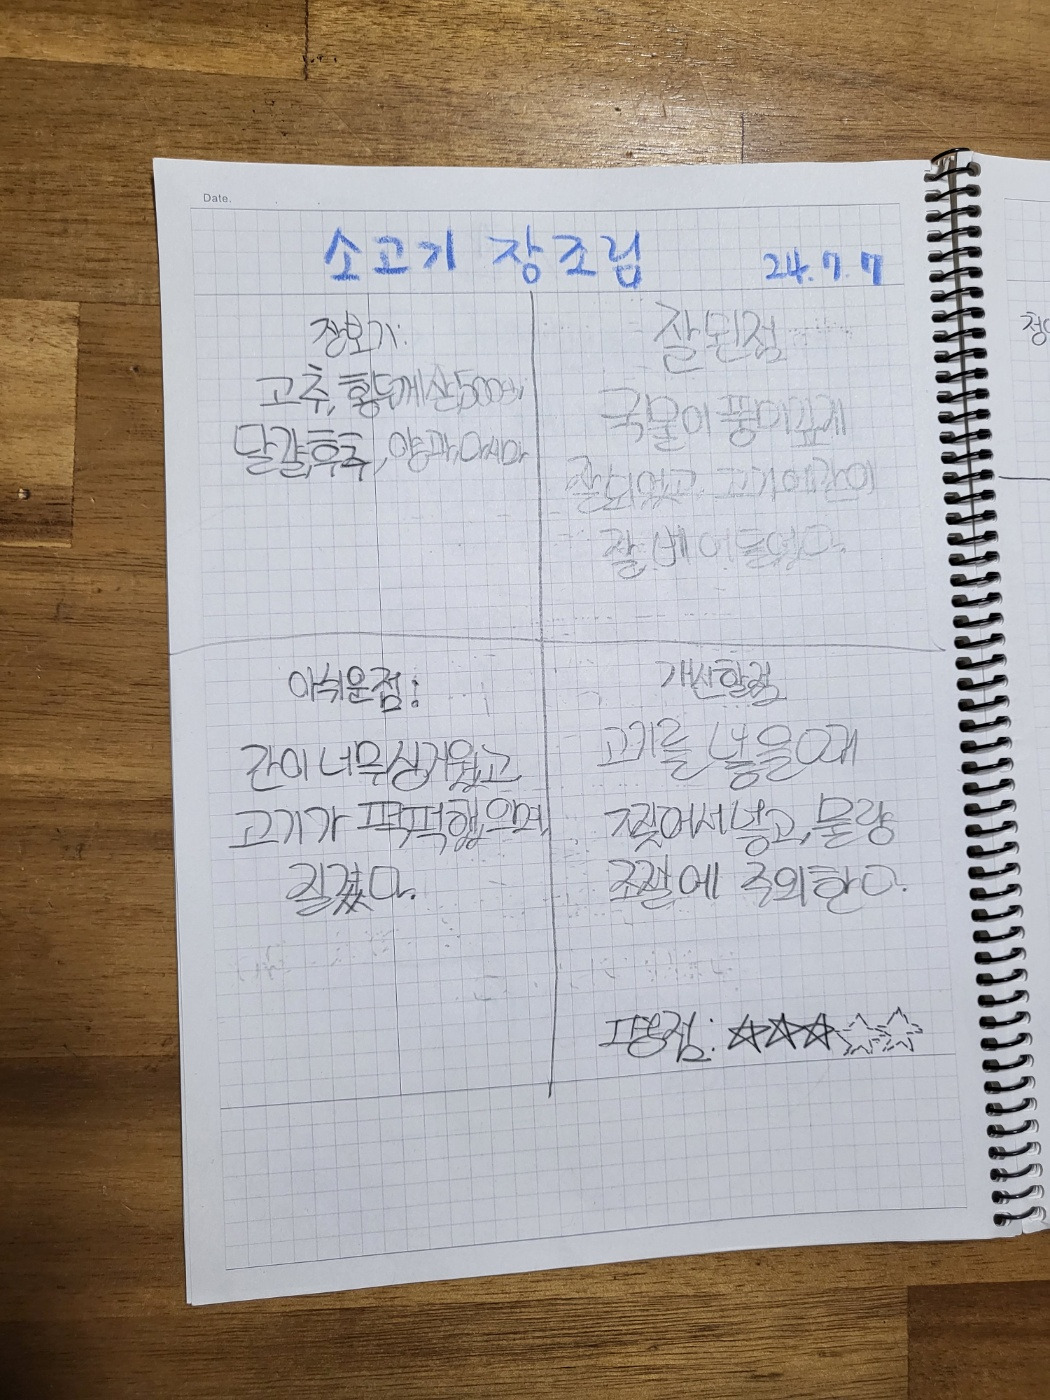 Date.
소고기 장조림 24.7.7
장보기:
고추, 홍두깨살500g
달걀,후추, 양파,다시마
잘된점
국물이 풍미깊게
잘되었고 고기에간이
잘 베어들었다.
아쉬운점:
간이 너무싱거웠고
고기가 퍽퍽했으며
질겼다.
개선할점
고기를 넣을때
찢어서넣고, 물량
조절에 주의한다.
평점: ★★★☆☆